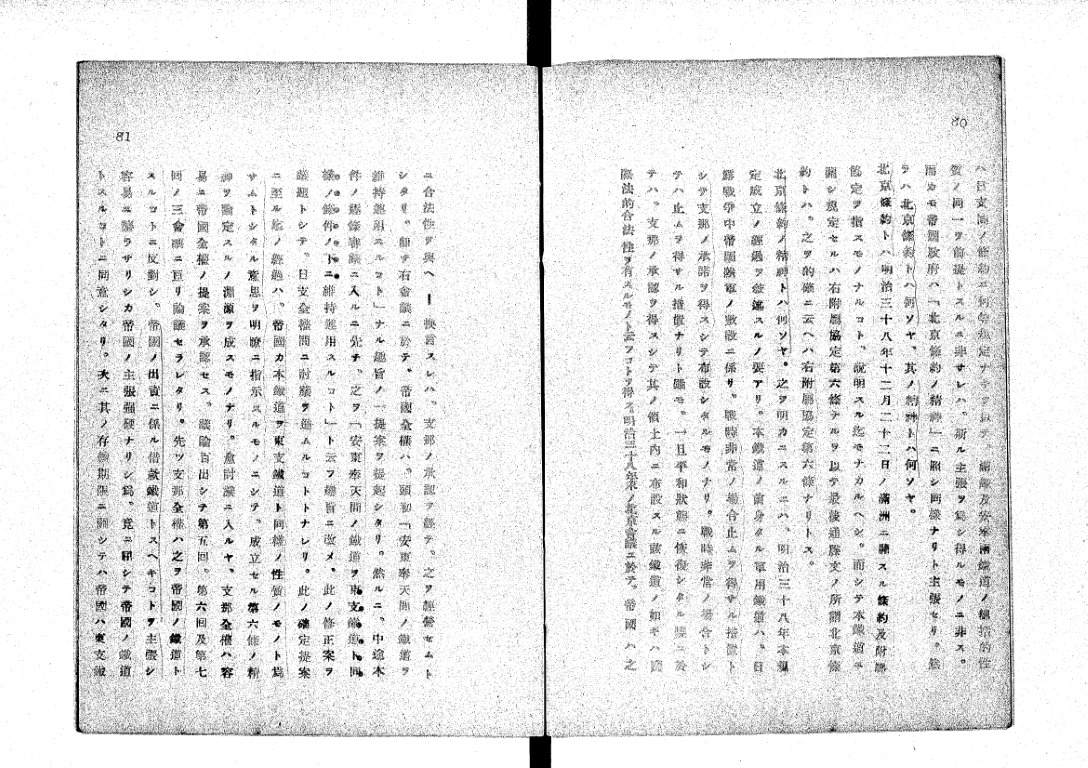 80
ハ日支間ノ條約ニ何等規定ナキヲ以テ、南滿及安奉兩鐵道ノ包括的性
質ノ同一ヲ前提トスルニ非サレハ、斯ル主張ヲ爲シ得ルモノニ非ス。
而カモ帝國政府ハ「北京條約ノ精神」ニ照シ同樣ナリト主張セリ。然
ラハ北京條約トハ何ソヤ、其ノ精神トハ何ソヤ。
北京條約トハ明治三十八年十二月二十二日ノ滿洲ニ關スル條約及附屬
協定ヲ指スモノナルコト、說明スル迄モナカルヘシ。而シテ本鐵道ニ
關シ規定セルハ右附屬協定第六條ナルヲ以テ最後通牒文ノ所謂北京條
約トハ、之ヲ的確ニ云ヘハ右附屬協定第六條ナリトス。
北京條約ノ精神トハ何ソヤ。之ヲ明カニスルニハ、明治三十八年本規
定成立ノ經過ヲ敍述スルノ要アリ。本鐵道ノ前身タル軍用鐵道ハ、日
露戰爭中帝國陸軍ノ敷設ニ係リ。戰時非常ノ場合止ムヲ得サル措置ト
シテ支那ノ承諾ヲ得スシテ布設シタルモノナリ。戰時非常ノ場合トシ
テハ止ムヲ得サル措置ナリト雖モ、一旦平和狀態ニ恢復シタル曉ニ於
テハ、支那ノ承認ヲ得スシテ其ノ領土內ニ布設スル該鐵道ノ如キハ國
際法的合法性ヲ有スルモノト云フコトヲ得ス。明治三十八年末ノ北京會議ニ於テ、帝國ハ之
81
ニ合法性ヲ與ヘ ー 換言スレハ、支那ノ承認ヲ經テ、之ヲ經營セムト
シタリ。而シテ右會議ニ於テ、帝國全權ハ、頭初「安東奉天間ノ鐵道ヲ
維持運用スルコト」ナル趣旨ノ一提案ヲ提起シタリ。然ルニ、中途本
件ノ逐條審議ニ入ルニ先チ、之ヲ「安東奉天間ノ鐵道ヲ東支鐵道ト同
樣ノ條件ノ下ニ維持運用スルコト」ト云フ趣旨ニ改メ、此ノ修正案ヲ
議題トシテ、日支全權間ニ討議ヲ進ムルコトトナレリ。此ノ確定提案
ニ至ル迄ノ經過ハ、帝國カ本鐵道ヲ東支鐵道ト同樣ノ性質ノモノト爲
サムトシタル意思ヲ明瞭ニ指示スルモノニシテ、成立セル第六條ノ精
神ヲ論定スルノ淵源ヲ成スモノナリ。愈討議ニ入ルヤ、支那全權ハ容
易ニ帝國全權ノ提案ヲ承認セス。議論百出シテ第五回、第六回及第七
回ノ三會議ニ亘リ論議セラレタリ。先ツ支那全權ハ之ヲ帝國ノ鐵道ト
スルコトニ反對シ、帝國ノ出資ニ係ル借款鐵道トスヘキコトヲ主張シ
容易ニ讓ラサリシカ帝國ノ主張强硬ナリシ爲、竟ニ屈シテ帝國ノ鐵道
トスルコトニ同意シタリ。次ニ其ノ存續期限ニ關シテハ帝國ハ東支鐵